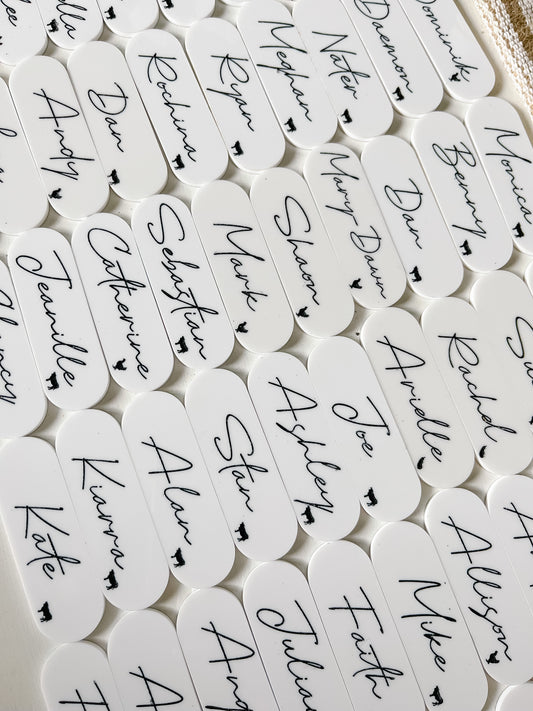 Andy
Dan
Rochina
Ryan
Meghan
Nater
Daemon
Dominik
Jeanille
Catherine
Sebastian
Mark
Shaon
Mary-Dawn
Dan
Benny
Monica
Kate
Kiarra
Alan
Stan
Ashley
Joe
Arielle
Rachel
Julia
Faith
Mike
Allison